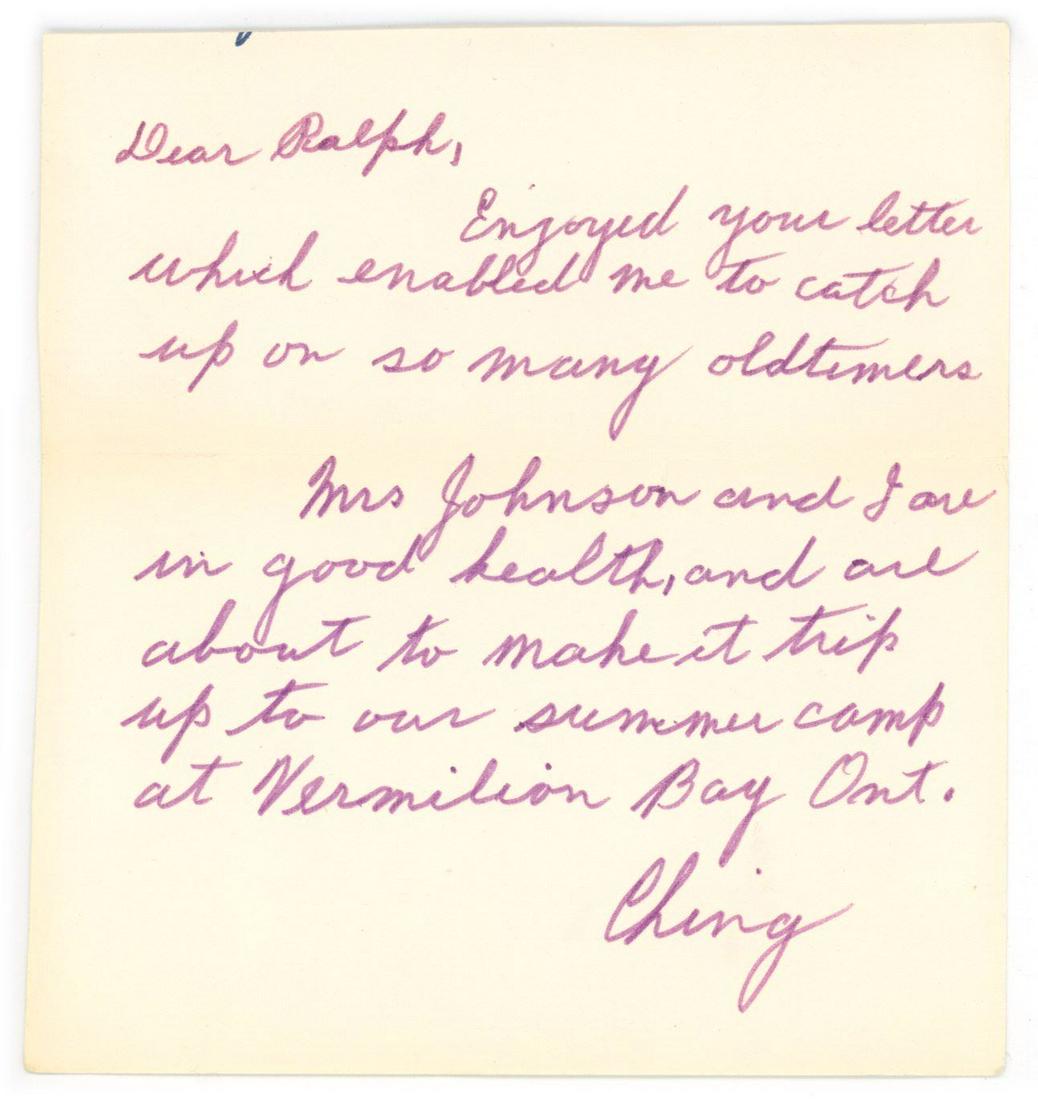 Dear Ralph,
Enjoyed your letter
which enabled me to catch
up on so many oldtimers
Mrs Johnson and I are
in good health, and are
about to make it trip
up to our summer camp
at Vermilion Bay Ont.
Ching